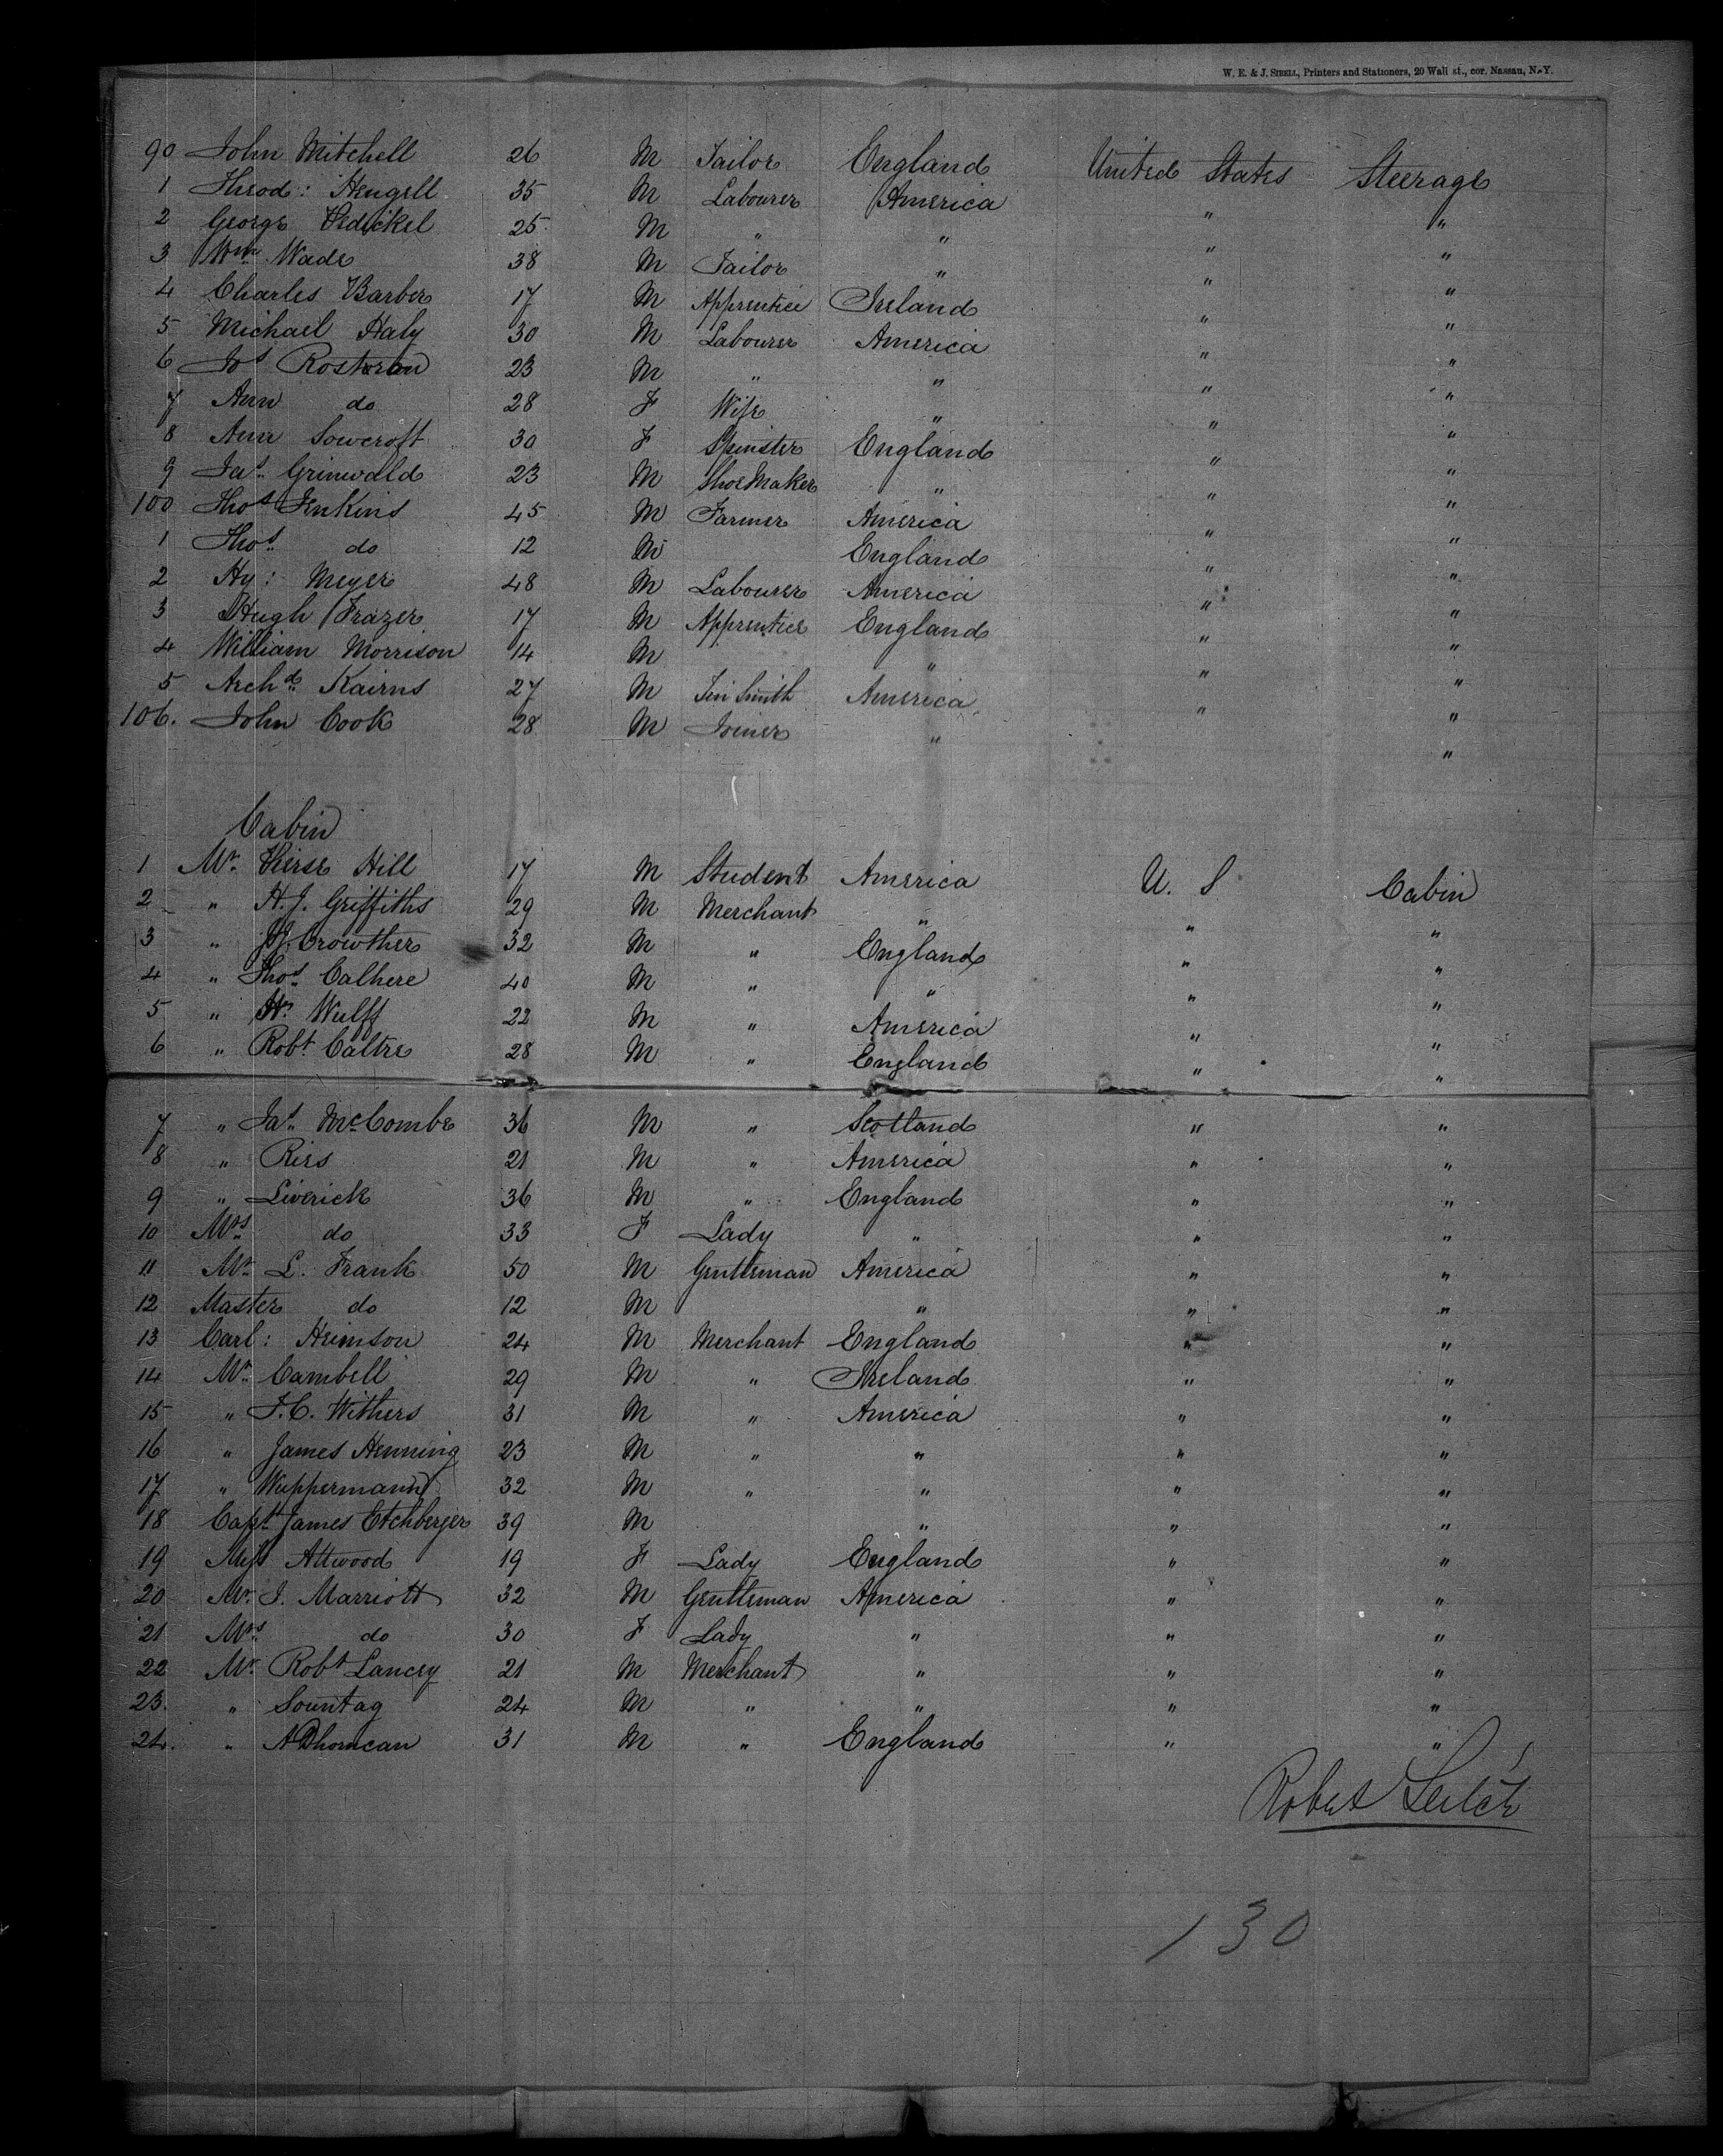 W. E. & J. SIBELL, Printers and Stationers, 20 Wall st., cor. Nassau, N.Y.
90 John Mitchell 26 M Tailor England United States Steerage
1 Theod: Hengell 35 M Labourer America " "
2 George 25 M " " " "
3 Wm Wade 38 M Tailor " " "
4 Charles Barber 17 M Apprentice Ireland " "
5 Michael Haly 30 M Labourer America " "
6 Jos Rostron 23 M " " " "
7 Ann do 28 F Wife " " "
8 Ann Sowcroft 30 F Spinster England " "
9 Jas Grinwald 23 M ShoeMaker " " "
100 Thos Jenkins 45 M Farmer America " "
1 Thos do 12 M England " "
2 Hy: Meyer 48 M Labourer America " "
3 Hugh Frazer 17 M Apprentice England " "
4 William Morrison 14 M " " "
5 Archd Kairns 27 M Tin Smith America " "
106. John Cook 28 M Joiner " "
Cabin
1 Mr. Hill 17 M Student America U. S Cabin
2 " H. J. Griffiths 29 M Merchant " " "
3 " Crowther 32 M " England " "
4 " Thos Calhere 40 M " " " "
5 " Wulff 22 M " America " "
6 " Robt Caltre 28 M " England " "
7 " Jas McCombe 36 M " Scotland " "
8 " Ries 21 M " America " "
9 " Liverick 36 M " England " "
10 Mrs do 33 F Lady " " "
11 Mr L. Frank 50 M Gentleman America " "
12 Master do 12 M " " "
13 Carl: Heimson 24 M Merchant England " "
14 Mr Cambell 29 M " Ireland " "
15 " J. C. Withers 31 M " America " "
16 " James Henning 23 M " " " "
17 " Wuppermann 32 M " " " "
18 Capt James Etchberger 39 M " " "
19 Miss Attwood 19 F Lady England " "
20 Mr. J. Marriott 32 M Gentleman America " "
21 Mrs do 30 F Lady " " "
22 Mr. Robt Lancey 21 M Merchant " " "
23. " Sonntag 24 M " " " "
24. " 31 M " England " "
Robert Leitch
130